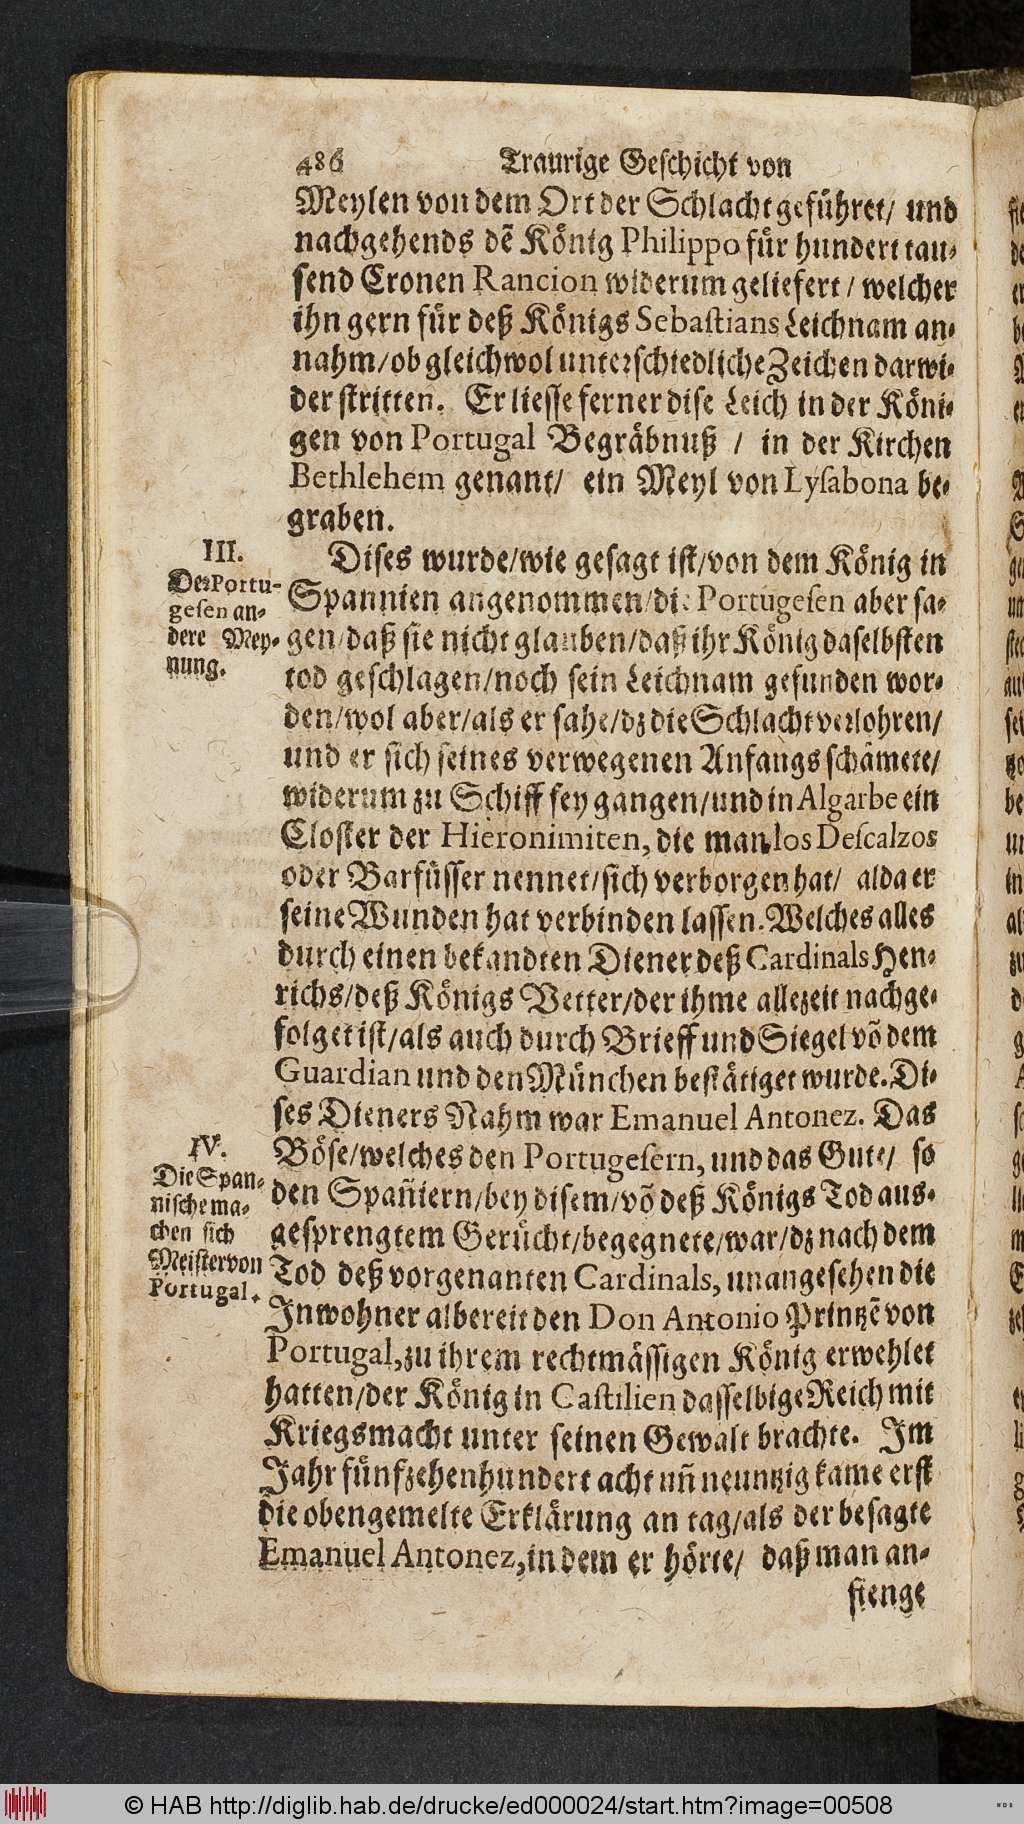 486 Traurige Geschicht von
Meylen von dem Ort der Schlacht geführet/ und
nachgehends dẽ König Philippo für hundert tau-
send Cronen Rancion widerum geliefert / welcher
ihn gern für deß Königs Sebastians Leichnam an-
nahm/ob gleichwol unterschiedliche Zeichen darwi-
der stritten. Er liesse ferner dise Leich in der Köni-
gen von Portugal Begräbnuß / in der Kirchen
Bethlehem genant/ ein Meyl von Lysabona be-
graben.
III.
Der Portu-
gesen an-
dere Mey-
nung.
Dises wurde/wie gesagt ist/von dem König in
Spannien angenommen/die Portugesen aber sa-
gen/daß sie nicht glauben/daß ihr König daselbsten
tod geschlagen/noch sein Leichnam gefunden wor-
den/wol aber/als er sahe/dz die Schlacht verlohren/
und er sich seines verwegenen Anfangs schämete/
widerum zu Schiff sey gangen/und in Algarbe ein
Closter der Hieronimiten, die man los Descalzos
oder Barfüsser nennet/sich verborgen hat/ alda er
seine Wunden hat verbinden lassen. Welches alles
durch einen bekandten Diener deß Cardinals Hen-
richs/deß Königs Vetter/der ihme allezeit nachge-
folget ist/als auch durch Brieff und Siegel võ dem
Guardian und den München bestätiget wurde. Di-
ses Dieners Nahm war Emanuel Antonez. Das
IV.
Die Span-
nische ma-
chen sich
Meister von
Portugal.
Böse/welches den Portugesern, und das Gute/ so
den Spañiern/bey disem/võ deß Königs Tod aus-
gesprengtem Gerücht/begegnete/war/dz nach dem
Tod deß vorgenanten Cardinals, unangesehen die
Inwohner albereit den Don Antonio Printzẽ von
Portugal, zu ihrem rechtmässigen König erwehlet
hatten/der König in Castilien dasselbige Reich mit
Kriegsmacht unter seinen Gewalt brachte. Im
Jahr fünfzehenhundert acht uñ neuntzig kame erst
die obengemelte Erklärung an tag/als der besagte
Emanuel Antonez, in dem er hörte/ daß man an-
fienge
© HAB http://diglib.hab.de/drucke/ed000024/start.htm?image=00508